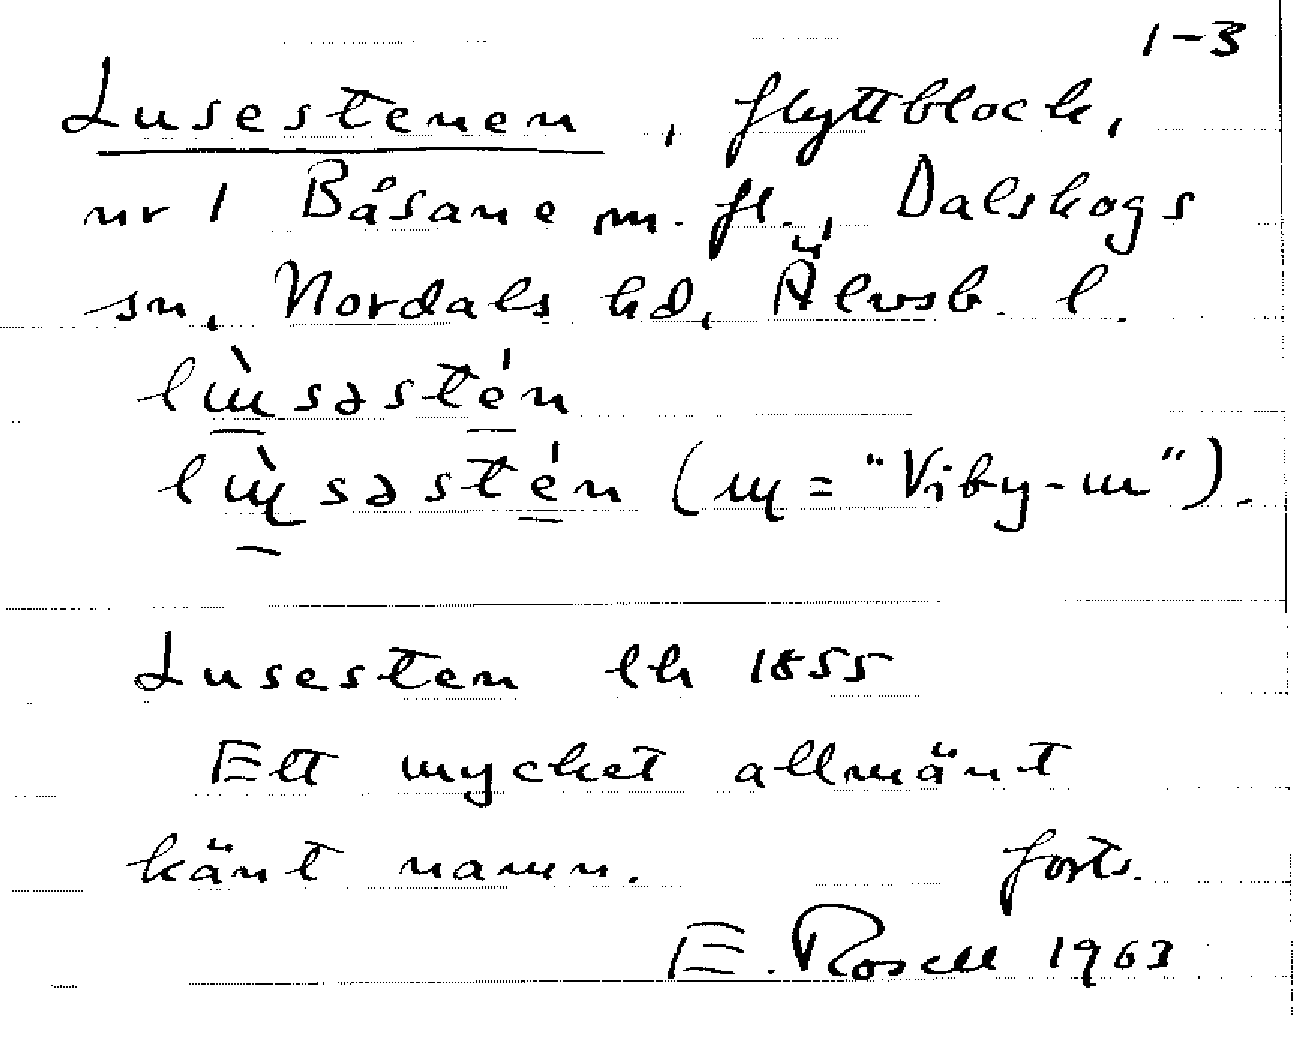 1-3
Lusestenen, flyttblock,
nr 1 Båsane m. fl., Dalskogs
sn, Nordals hd, Älvsb. l.
lɯ̀səstén
lɯ̀səstén (ɯ = "Viby-ɯ").
Lusesten lk 1855
Ett mycket allmänt
känt namn. forts.
E. Rosell 1963